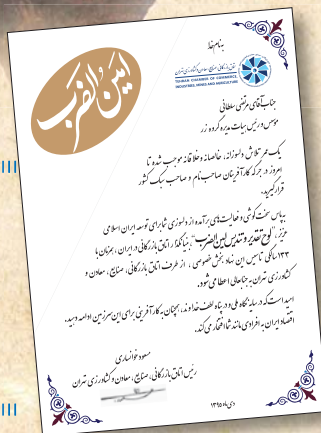 به نام خدا
امین الضرب
اتاق بازرگانی، صنایع، معادن و کشاورزی تهران
TEHRAN CHAMBER OF COMMERCE,
INDUSTRIES, MINES AND AGRICULTURE
جناب آقای مرتضی سلطانی
موسس و رئیس هیات مدیره گروه زر
یک عمر تلاش دلسوزانه، خالصانه و خلاقانه موجب شده تا
امروز در جرگه کارآفرینان صاحب نام و صاحب سبک کشور
قرار گیرید.
به پاس سخت کوشی و فعالیت های برآمده از دلسوزی شما برای توسعه ایران اسلامی
عزیز، "لوح تقدیر و تندیس امین الضرب"، بنیانگذار اتاق بازرگانی در ایران، همزمان با
۱۳۳ سالگی تاسیس این نهاد بخش خصوصی، از طرف اتاق بازرگانی، صنایع، معادن و
کشاورزی تهران به جنابعالی اعطا می شود.
امید است که در سایه نگاه ملی و در پناه لطف خداوند، همچنان به کارآفرینی برای این سرزمین ادامه دهید.
اقتصاد ایران به افرادی مانند شما افتخار می کند.
مسعود خوانساری
رئیس اتاق بازرگانی، صنایع، معادن و کشاورزی تهران
دی ماه ۱۳۹۵